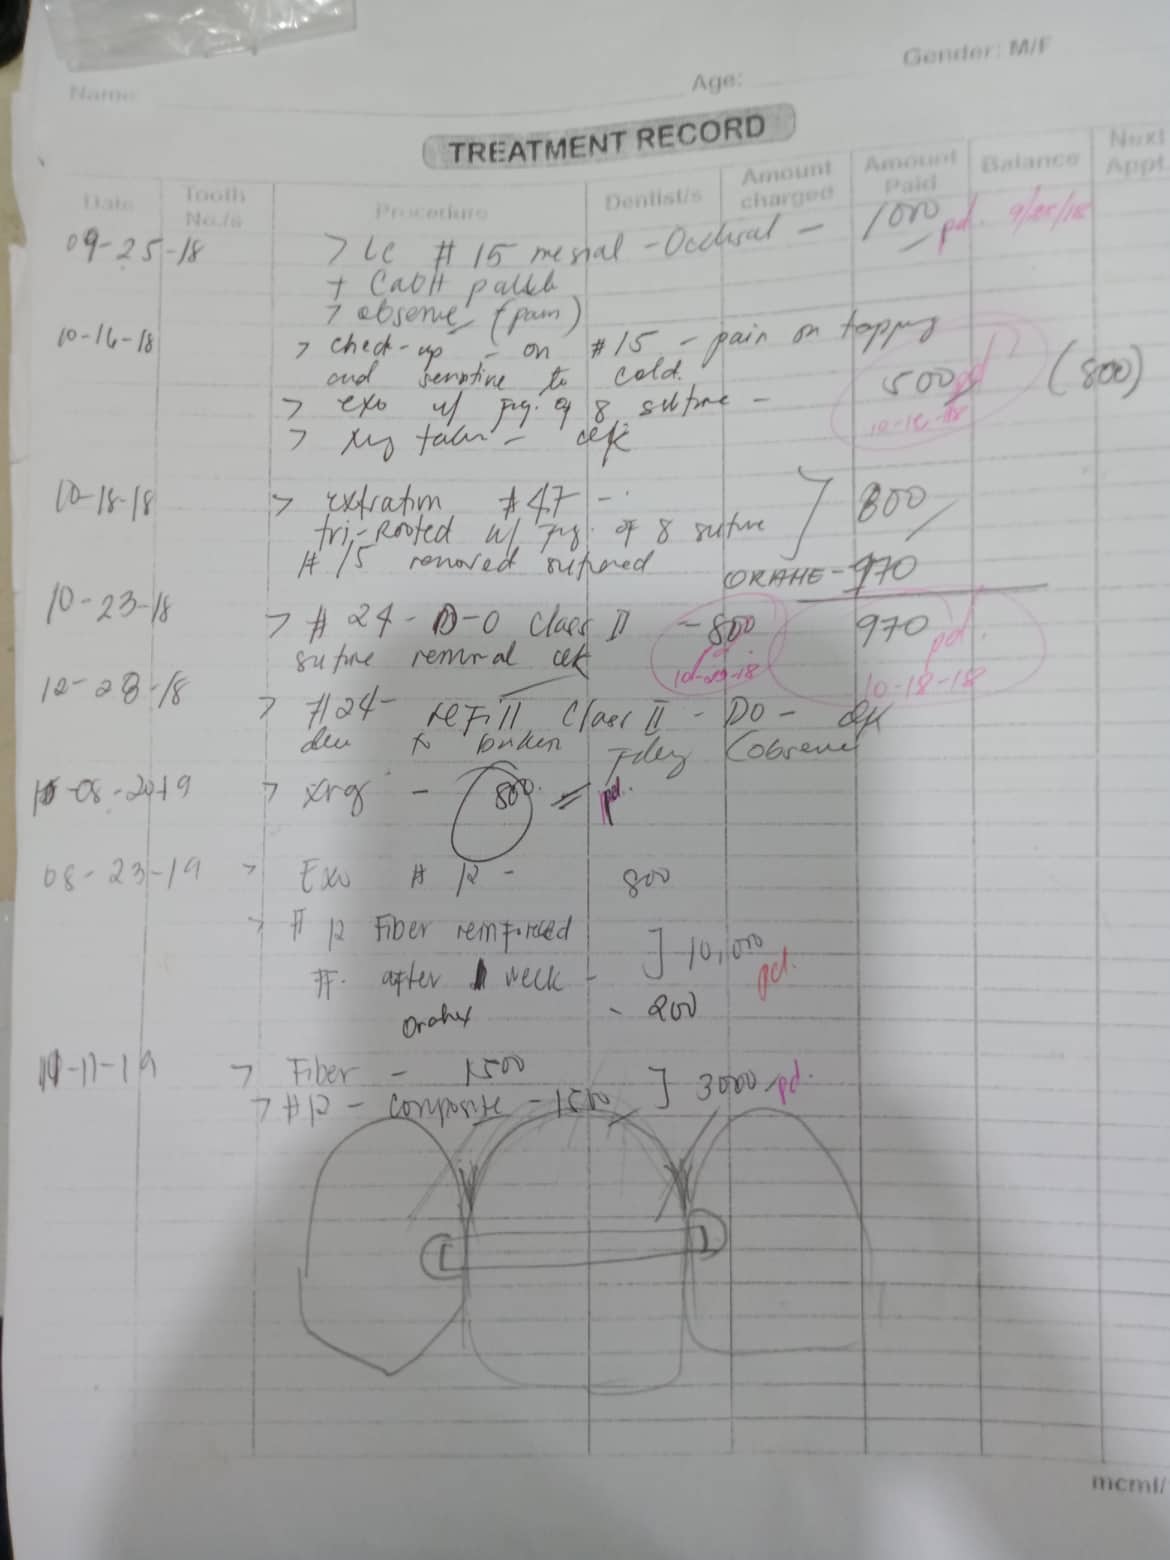 Gender: M/F
Name: Age:
TREATMENT RECORD
Date Tooth No./s Procedure Dentist/s Amount charged Amount Paid Balance Next Appt.
09-25-18 > LC # 15 mesial - Occlusal - 1000 pd. 9/25/18
+ CaOH
> observe (pain)
10-16-18 > check-up - on #15 - pain on tapping
and sensitive to cold. 500 pd (800)
> exo w/ fig. of 8 suture - 10-16-18
> xray taken -
10-18-18 > extration #47 - 800
tri-Rooted w/ fig. of 8 suture
# 15 removed sutured ORAHE - 970
10-23-18 > # 24 - D-O Class II - 800 970 pd.
suture removal 10-18-18
12-28-18 > #24 - refill Class II - DO -
due to broken (observe
-08-2019 > xray - 800 = pd.
08-23-19 > Exo # 12 - 800
> # 12 Fiber reinforced
#. after 1 week - ] 10,000 pd.
Orahex - 200
11-11-19 > Fiber - 1500
> #12 - composite - 1500 ] 3000 pd.
mcml/